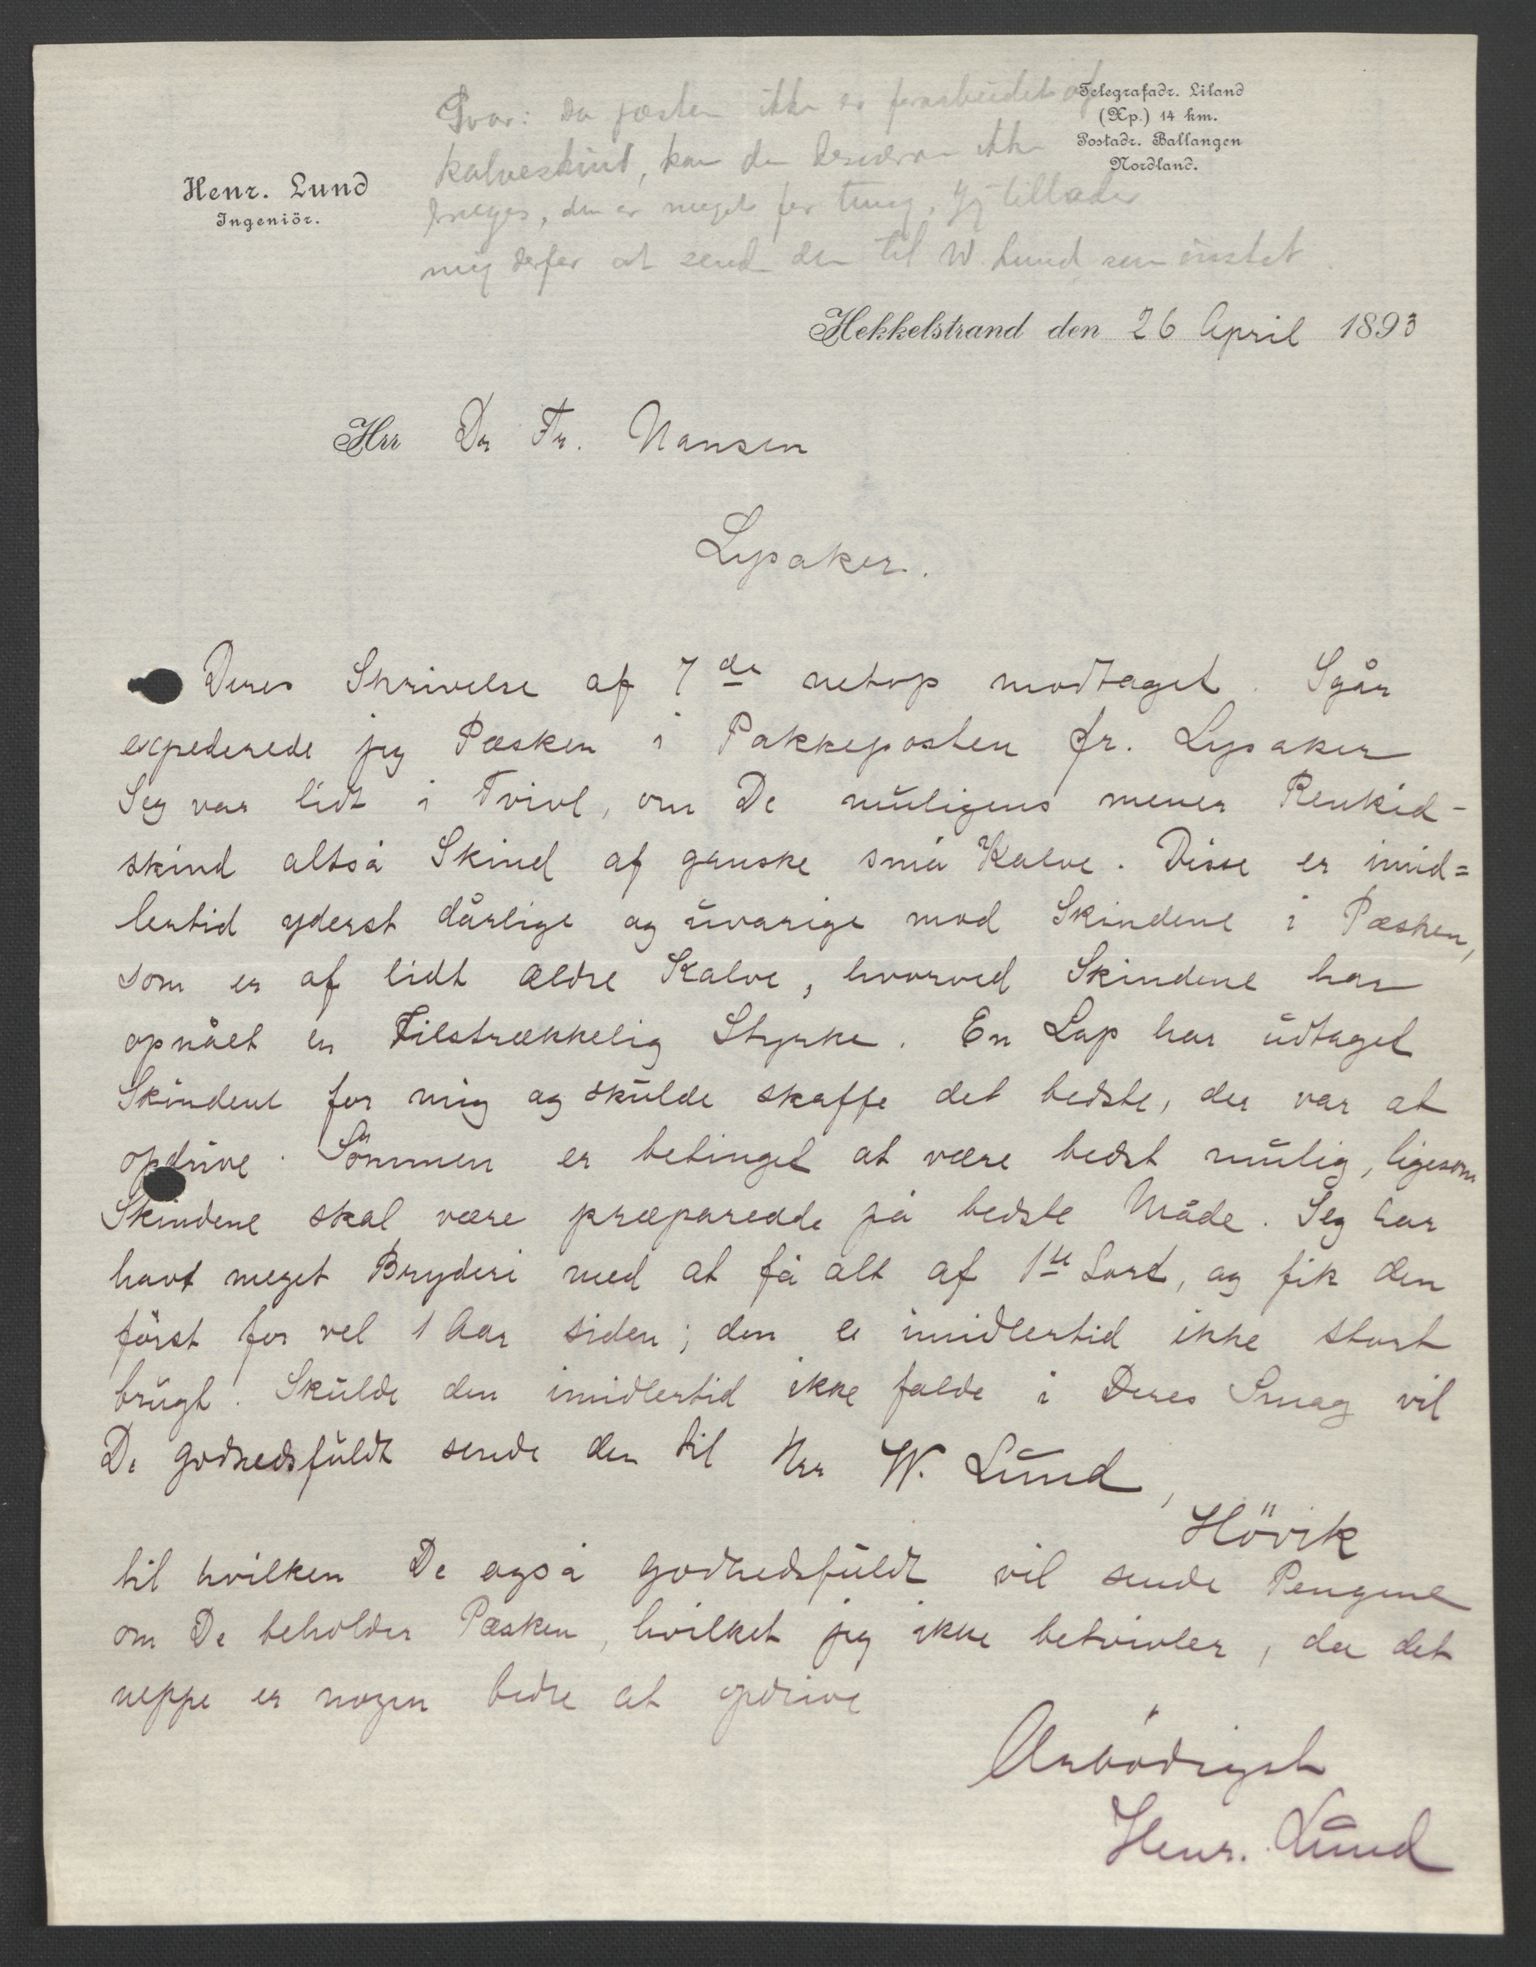 Svar: Da pæsken ikke er forarbeidet af
kalveskind, kan den desværre ikke
bruges, den er meget for tung. Jeg tillader
mig derfor at sende den til W. Lund som önsket.
Telegrafadr. Liland
(Xp.) 14 km.
Postadr. Ballangen
Nordland.
Henr. Lund
Ingeniör.
Hekkelstrand den 26 April 1893
Hrr Dr Fr. Nansen
Lysaker.
Deres Skrivelse af 7de netop modtaget. Igår
expederede jeg Pæsken i Pakkeposten fr. Lysaker
Jeg var lidt i Tvivl, om De muligens mener Renkid-
skind altså Skind af ganske små Kalve. Disse er imid=
lertid yderst dårlige og uvarige mod Skindene i Pæsken,
som er af lidt ældre Kalve, hvorved Skindene har
opnået en Tilstrækkelig Styrke. En Lap har udtaget
Skindene for mig og skulde skaffe det bedste, der var at
opdrive. Sömmen er betinget at være bedst mulig, ligesom
Skindene skal være præparedde på bedste Måde. Jeg har
havt meget Bryderi med at få alt af 1ste Sort, og fik den
först for vel 1 Aar siden; den er imidlertid ikke stort
brugt. Skulde den imidlertid ikke falde i Deres Smag vil
De godhedsfuldt sende den til Hrr W. Lund,
Hövik
til hvilken De også godhedsfuldt vil sende Pengene
om De beholder Pæsken, hvilket jeg ikke betvivler, da det
neppe er nogen bedre at opdrive
Ærbödigst
Henr. Lund